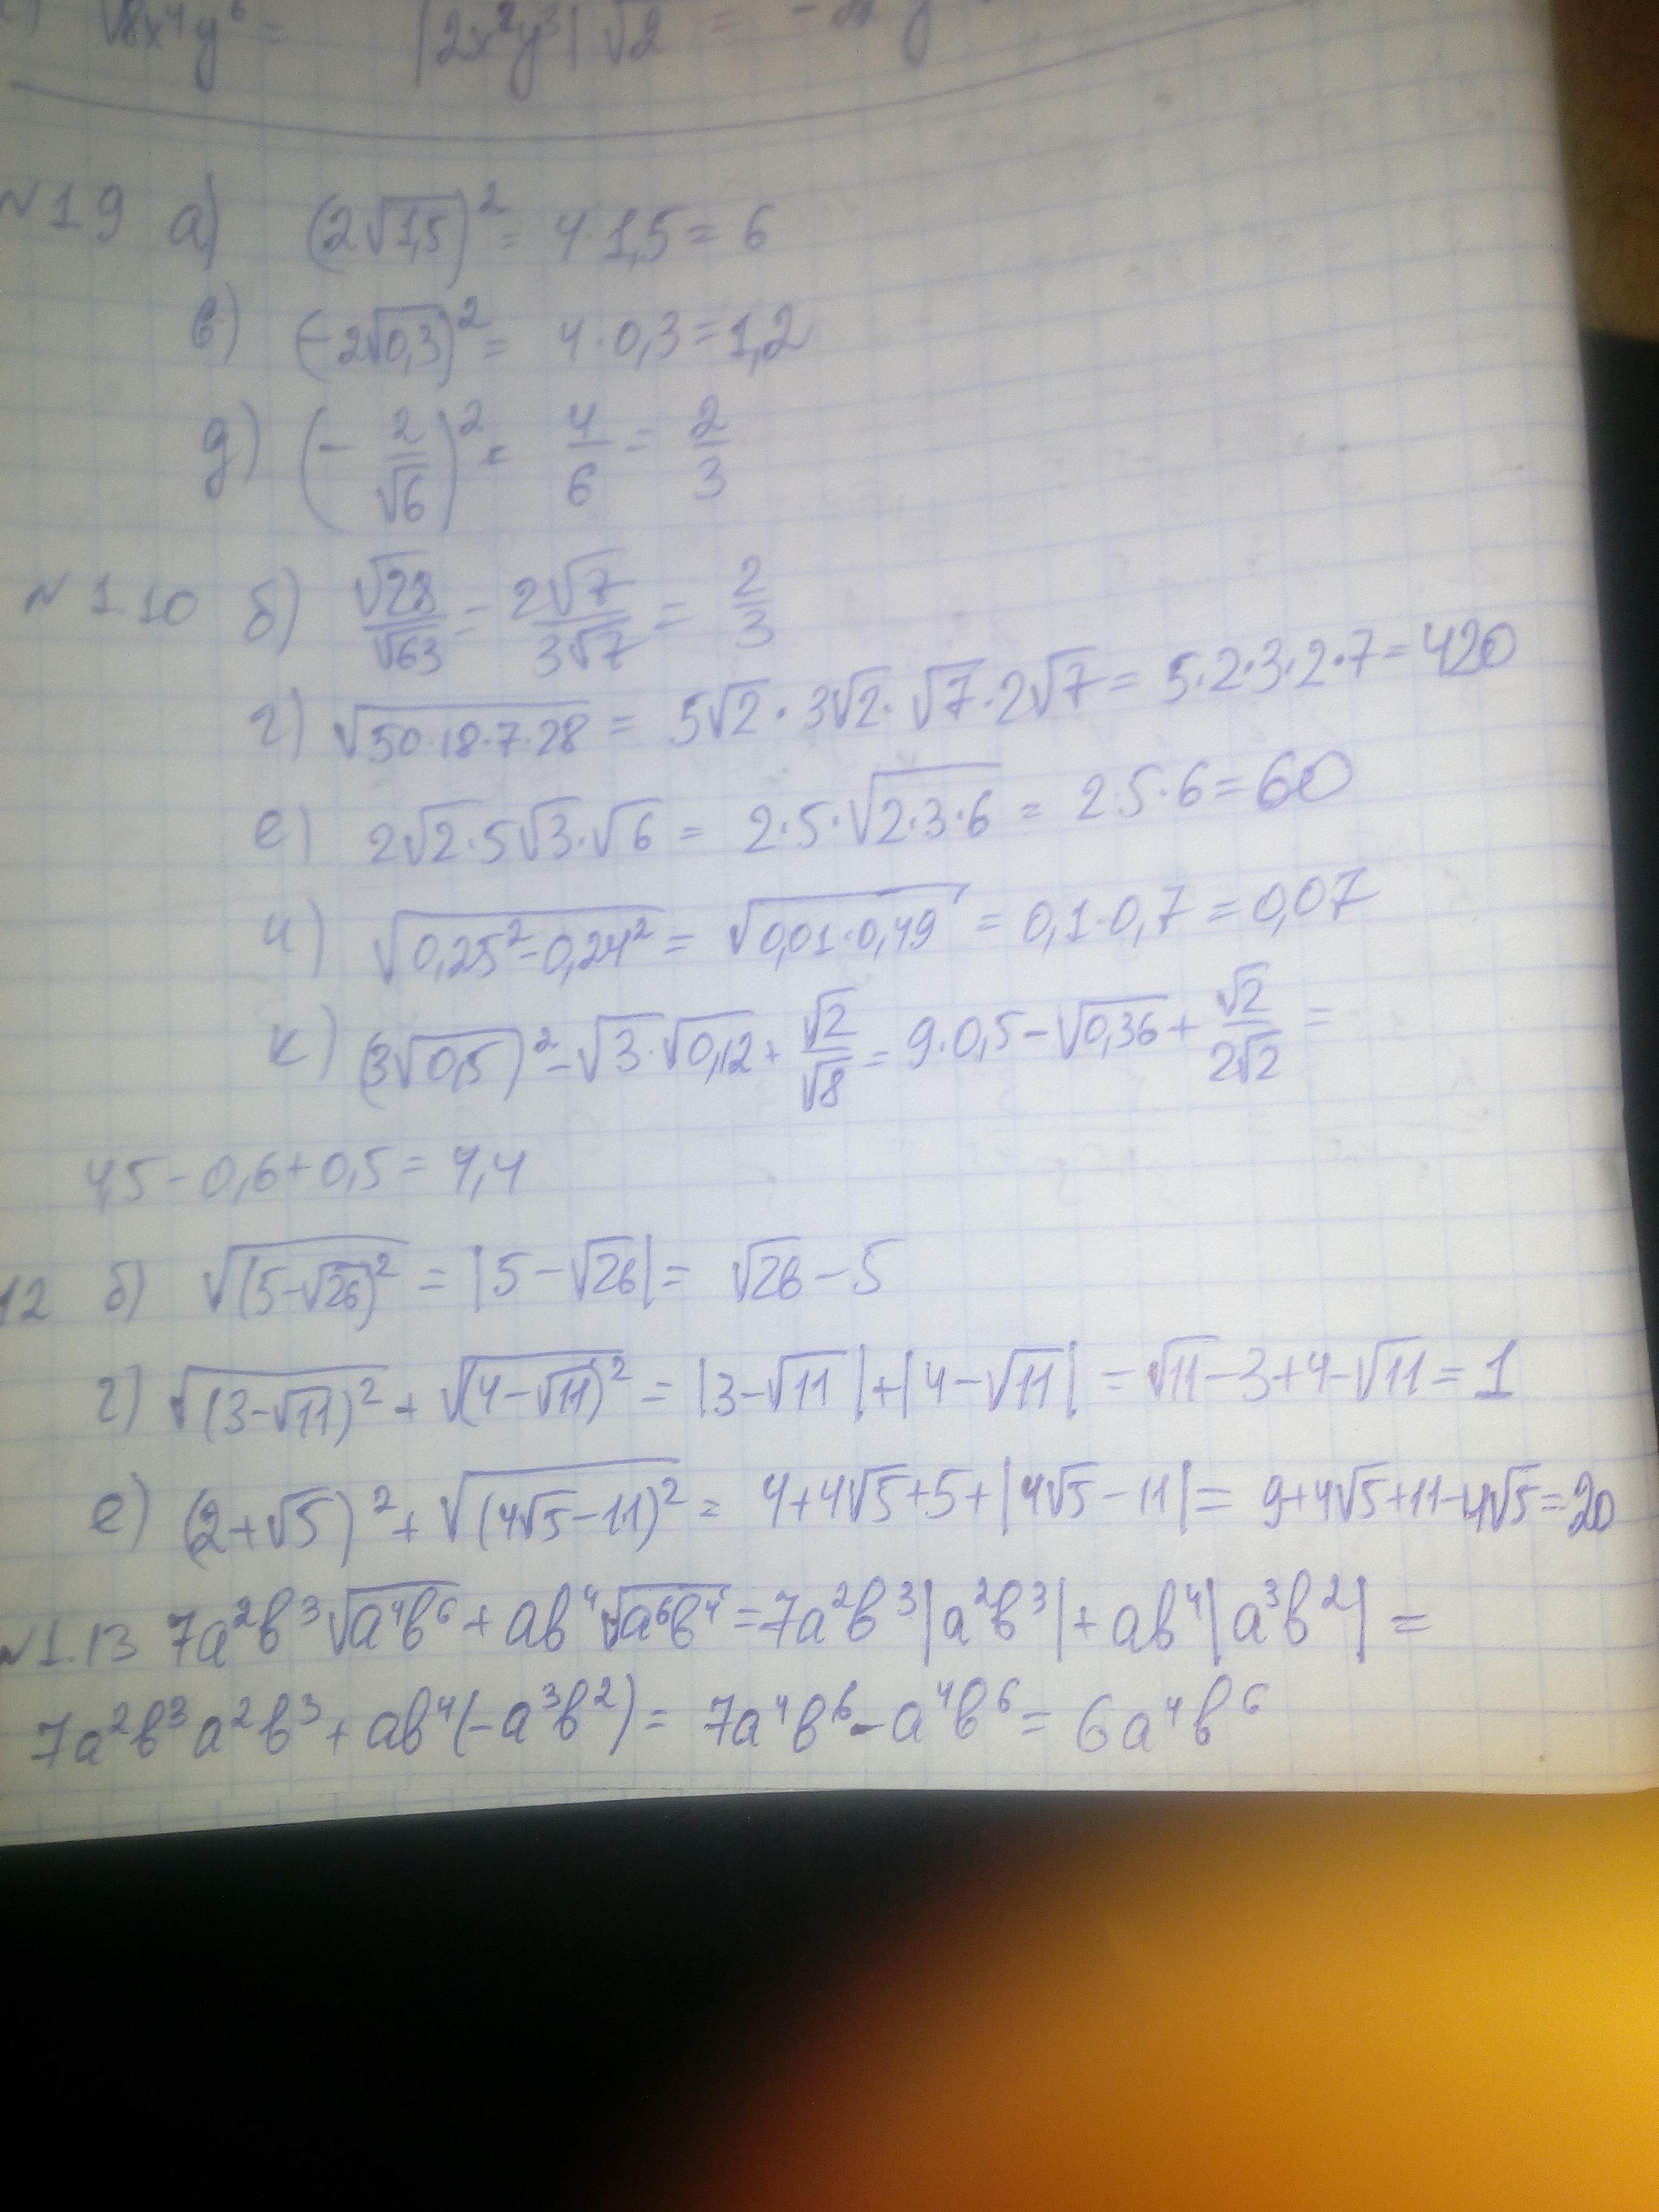 √8x⁴y⁶ = |2x²y³|√2 =
N 1.9 а) (2√1,5)² = 4·1,5 = 6
в) (-2√0,3)² = 4·0,3 = 1,2
д) (- 2/√6)² = 4/6 = 2/3
N 1.10 б) √28/√63 = 2√7/3√7 = 2/3
г) √50·18·7·28 = 5√2·3√2·√7·2√7 = 5·2·3·2·7 = 420
е) 2√2·5√3·√6 = 2·5·√2·3·6 = 2·5·6 = 60
и) √0,25²-0,24² = √0,01·0,49 = 0,1·0,7 = 0,07
к) (3√0,5)² - √3·√0,12 + √2/√8 = 9·0,5 - √0,36 + √2/2√2 =
4,5 - 0,6 + 0,5 = 4,4
12 б) √(5-√26)² = |5-√26| = √26 - 5
г) √(3-√11)² + √(4-√11)² = |3-√11| + |4-√11| = √11 - 3 + 4 - √11 = 1
е) (2+√5)² + √(4√5-11)² = 4+4√5+5+|4√5-11| = 9+4√5+11-4√5 = 20
N 1.13 7a²b³√a⁴b⁶ + ab⁴√a⁶b⁴ = 7a²b³|a²b³| + ab⁴|a³b²| =
7a²b³a²b³ + ab⁴(-a³b²) = 7a⁴b⁶ - a⁴b⁶ = 6a⁴b⁶